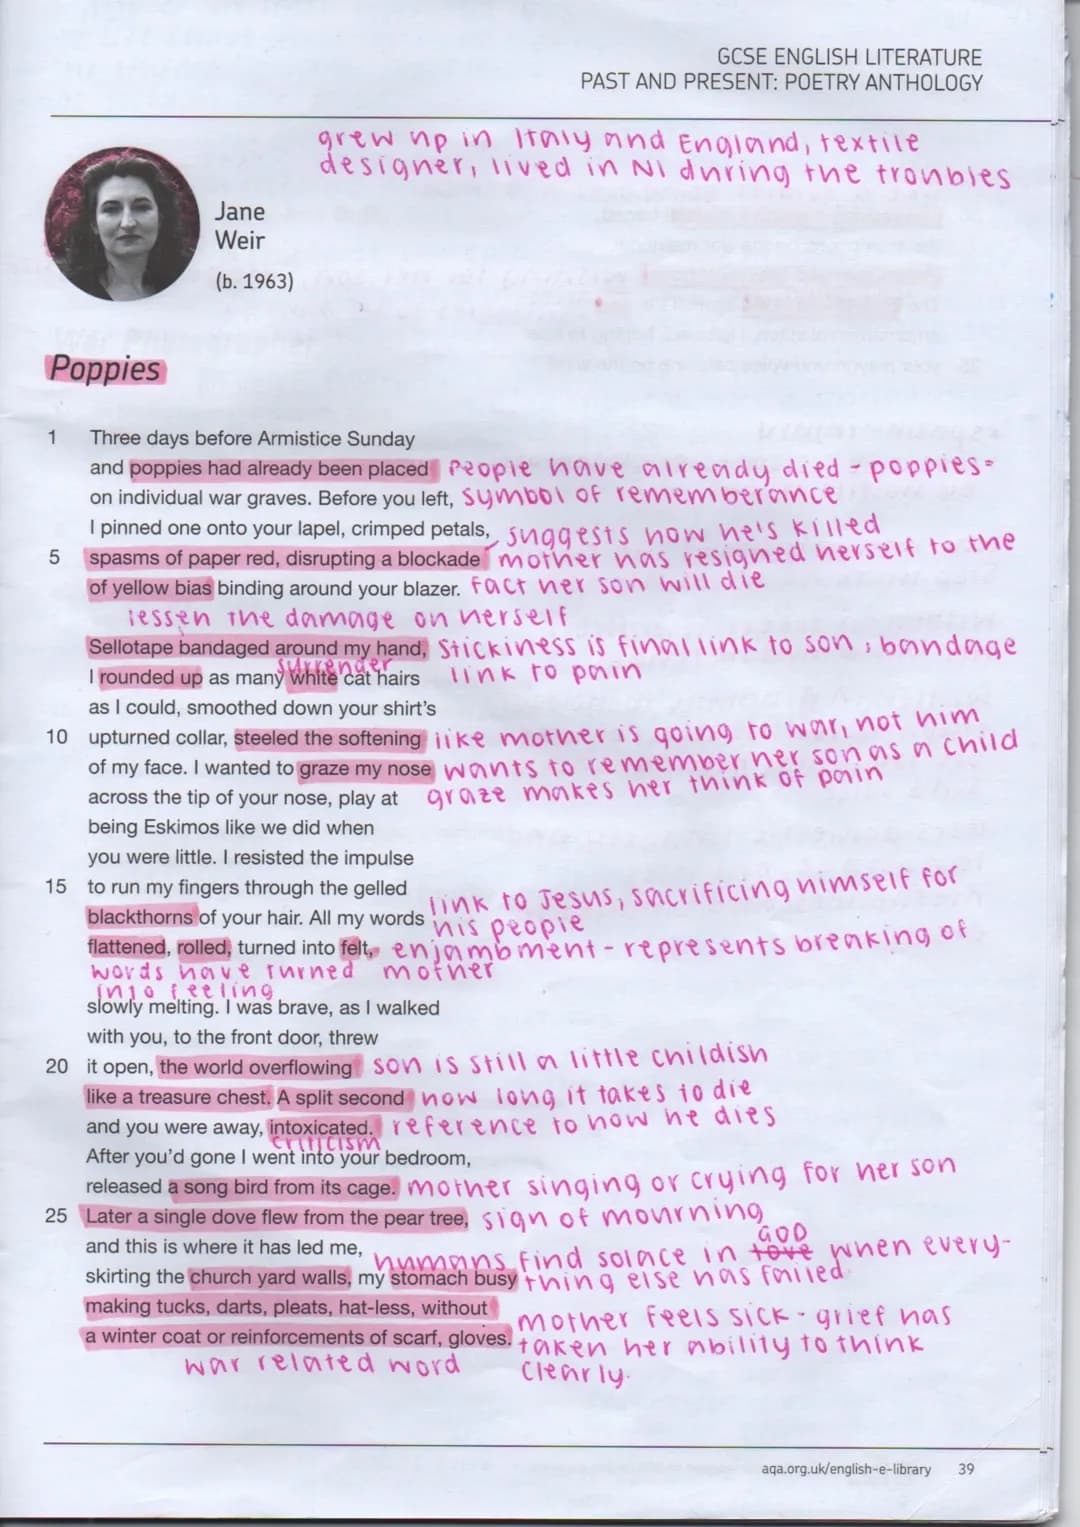 GCSE ENGLISH LITERATURE
PAST AND PRESENT: POETRY ANTHOLOGY
grew up in Italy and England, textile
designer, lived in NI during the troubles
Jane
Weir
(b. 1963)
Poppies
1 Three days before Armistice Sunday
and poppies had already been placed People have already died - poppies =
on individual war graves. Before you left, symbol of rememberance
I pinned one onto your lapel, crimped petals, suggests how he's killed
5 spasms of paper red, disrupting a blockade mother has resigned herself to the
of yellow bias binding around your blazer. fact her son will die
lessen the damage on herself
Sellotape bandaged around my hand, Stickiness is final link to son, bandage
surrender
I rounded up as many white cat hairs link to pain
as I could, smoothed down your shirt's
10 upturned collar, steeled the softening like mother is going to war, not him
of my face. I wanted to graze my nose wants to remember her son as a child
across the tip of your nose, play at graze makes her think of pain
being Eskimos like we did when
you were little. I resisted the impulse
15 to run my fingers through the gelled
link to Jesus, sacrificing himself for
blackthorns of your hair. All my words his people
flattened, rolled, turned into felt, enjambment - represents breaking of
words have turned mother
into feeling
slowly melting. I was brave, as I walked
with you, to the front door, threw
20 it open, the world overflowing son is still a little childish
like a treasure chest. A split second how long it takes to die
and you were away, intoxicated. reference to how he dies
criticism
After you'd gone I went into your bedroom,
released a song bird from its cage. mother singing or crying for her son
25 Later a single dove flew from the pear tree, sign of mourning
GOD
and this is where it has led me, humans find solace in love when every-
skirting the church yard walls, my stomach busy thing else has failed
making tucks, darts, pleats, hat-less, without mother feels sick - grief has
a winter coat or reinforcements of scarf, gloves. taken her ability to think
war related word clearly.
aqa.org.uk/english-e-library 39